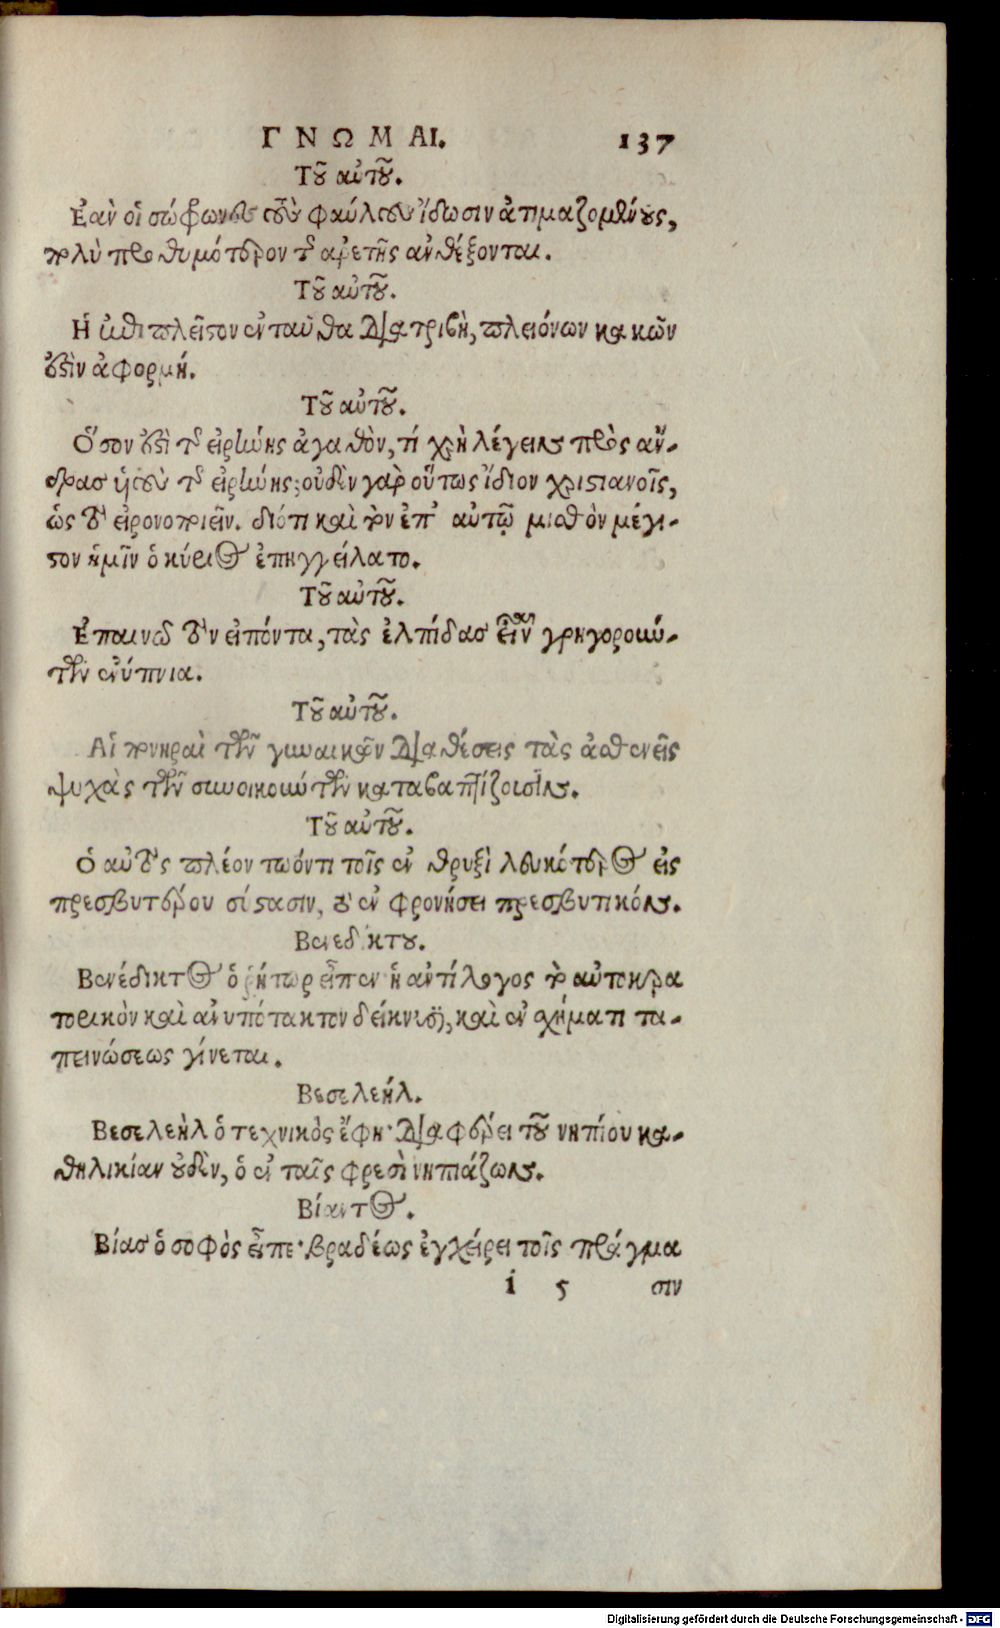 ΓΝΩΜΑΙ. 137
Τοῦ αὐτοῦ.
Ἐὰν οἱ σώφρονες τοὺς φαύλους ἴδωσιν ἀτιμαζομένους,
πολὺ προθυμότερον τῆς ἀρετῆς ἀνθέξονται.
Τοῦ αὐτοῦ.
Ἡ ἐπὶ πλεῖστον ἐνταῦθα διατριβὴ, πλειόνων κακῶν
ἐστὶν ἀφορμή.
Τοῦ αὐτοῦ.
Ὅσον ἐστὶ τῆς εἰρήνης ἀγαθὸν, τί χρὴ λέγειν πρὸς ἄν-
δρας υἱοὺς τῆς εἰρήνης; οὐδὲν γὰρ οὕτως ἴδιον χριστιανοῖς,
ὡς τὸ εἰρονοποιεῖν. διότι καὶ τὸν ἐπ' αὐτῷ μισθὸν μέγι-
στον ἡμῖν ὁ κύριος ἐπηγγείλατο.
Τοῦ αὐτοῦ.
Ἐπαινῶ τὸν εἰπόντα, τὰς ἐλπίδας εἶναι γρηγορούν-
των ἐνύπνια.
Τοῦ αὐτοῦ.
Αἱ πονηραὶ τῶν γυναικῶν διαθέσεις τὰς ἀσθενεῖς
ψυχὰς τῶν συνοικούντων καταβαπτίζουσιν.
Τοῦ αὐτοῦ.
Ὁ αὐτὸς πλέον τῷ ὄντι τοῖς ἐν θριξὶ λευκότερος εἰς
πρεσβυτέρου σύστασιν, τὸ ἐν φρονήσει πρεσβυτικόν.
Βενεδίκτου.
Βενέδικτος ὁ ῥήτωρ εἶπεν ἡ ἀντίλογος τὸ αὐτοκρα
τορικὸν καὶ ἀνυπότακτον δείκνυσι, καὶ ἐν σχήματι τα-
πεινώσεως γίνεται.
Βεσελεήλ.
Βεσελεὴλ ὁ τεχνικὸς ἔφη· διαφέρει τοῦ νηπίου κα-
θηλικίαν οὐδὲν, ὁ ἐν ταῖς φρεσὶ νηπιάζων.
Βίαντος.
Βίας ὁ σοφὸς εἶπε· βραδέως ἐγχείρει τοῖς πράγμα
i 5 σιν
Digitalisierung gefördert durch die Deutsche Forschungsgemeinschaft - DFG